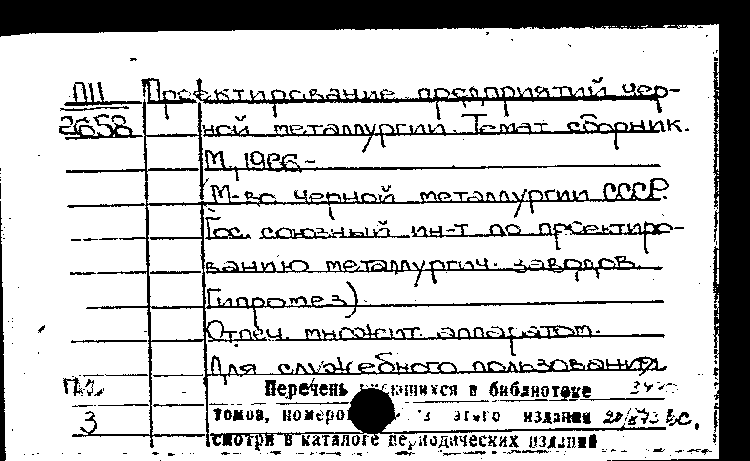 П11 Проектирование предприятий чер-
2658 ной металлургии. Темат сборник.
М, 1966-
(М-во черной металлургии СССР.
Гос. союзный ин-т по проектиро-
ванию металлургич. заводов
Гипромез)
Отпеч. множит. аппаратом.
Для служебного пользования
Перечень имеющихся в библиотеке
3 томов, номеров этого издания
смотри в каталоге периодических изданий